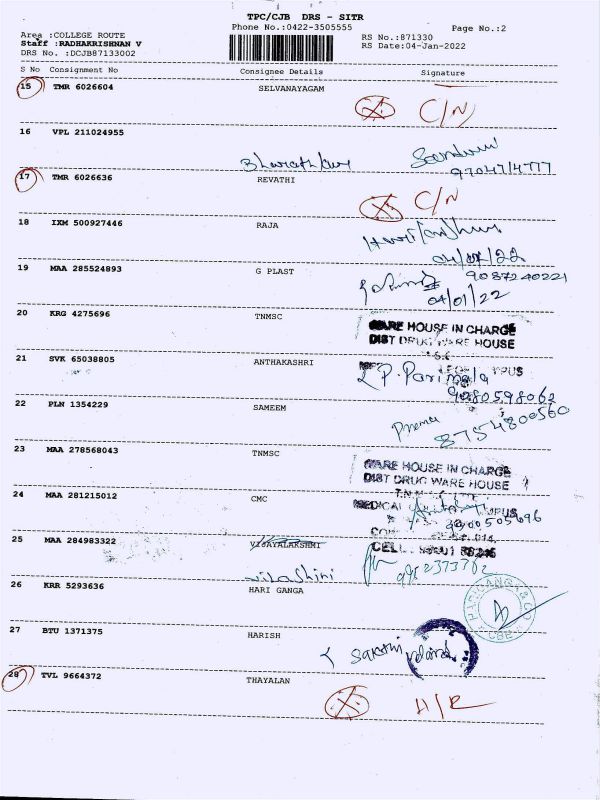 TPC/CJB DRS - SITR
Phone No.:0422-3505555
Page No.:2
Area :COLLEGE ROUTE
RS No.:871330
Staff :RADHAKRISHNAN V
RS Date:04-Jan-2022
DRS No. :DCJB87133002
S No Consignment No Consignee Details Signature
15 TMR 6026604 SELVANAYAGAM
C/N
16 VPL 211024955
9704714777
17 TMR 6026636 REVATHI
C/N
18 IXM 500927446 RAJA
04/01/22
19 MAA 285524893 G PLAST
9087240221
04/01/22
20 KRG 4275696 TNMSC
WARE HOUSE IN CHARGE
DIST DRUG WARE HOUSE
21 SVK 65038805 ANTHAKASHRI
P. Parimala
9080598062
22 PLN 1354229 SAMEEM
Prema
8754800560
23 MAA 278568043 TNMSC
WARE HOUSE IN CHARGE
DIST DRUG WARE HOUSE
24 MAA 281215012 CMC
MEDICAL
25 MAA 284983322 VIJAYALAKSHMI
CELL
9952373762
26 KRR 5293636 HARI GANGA
27 BTU 1371375 HARISH
Sakthi
28 TVL 9664372 THAYALAN
H/R